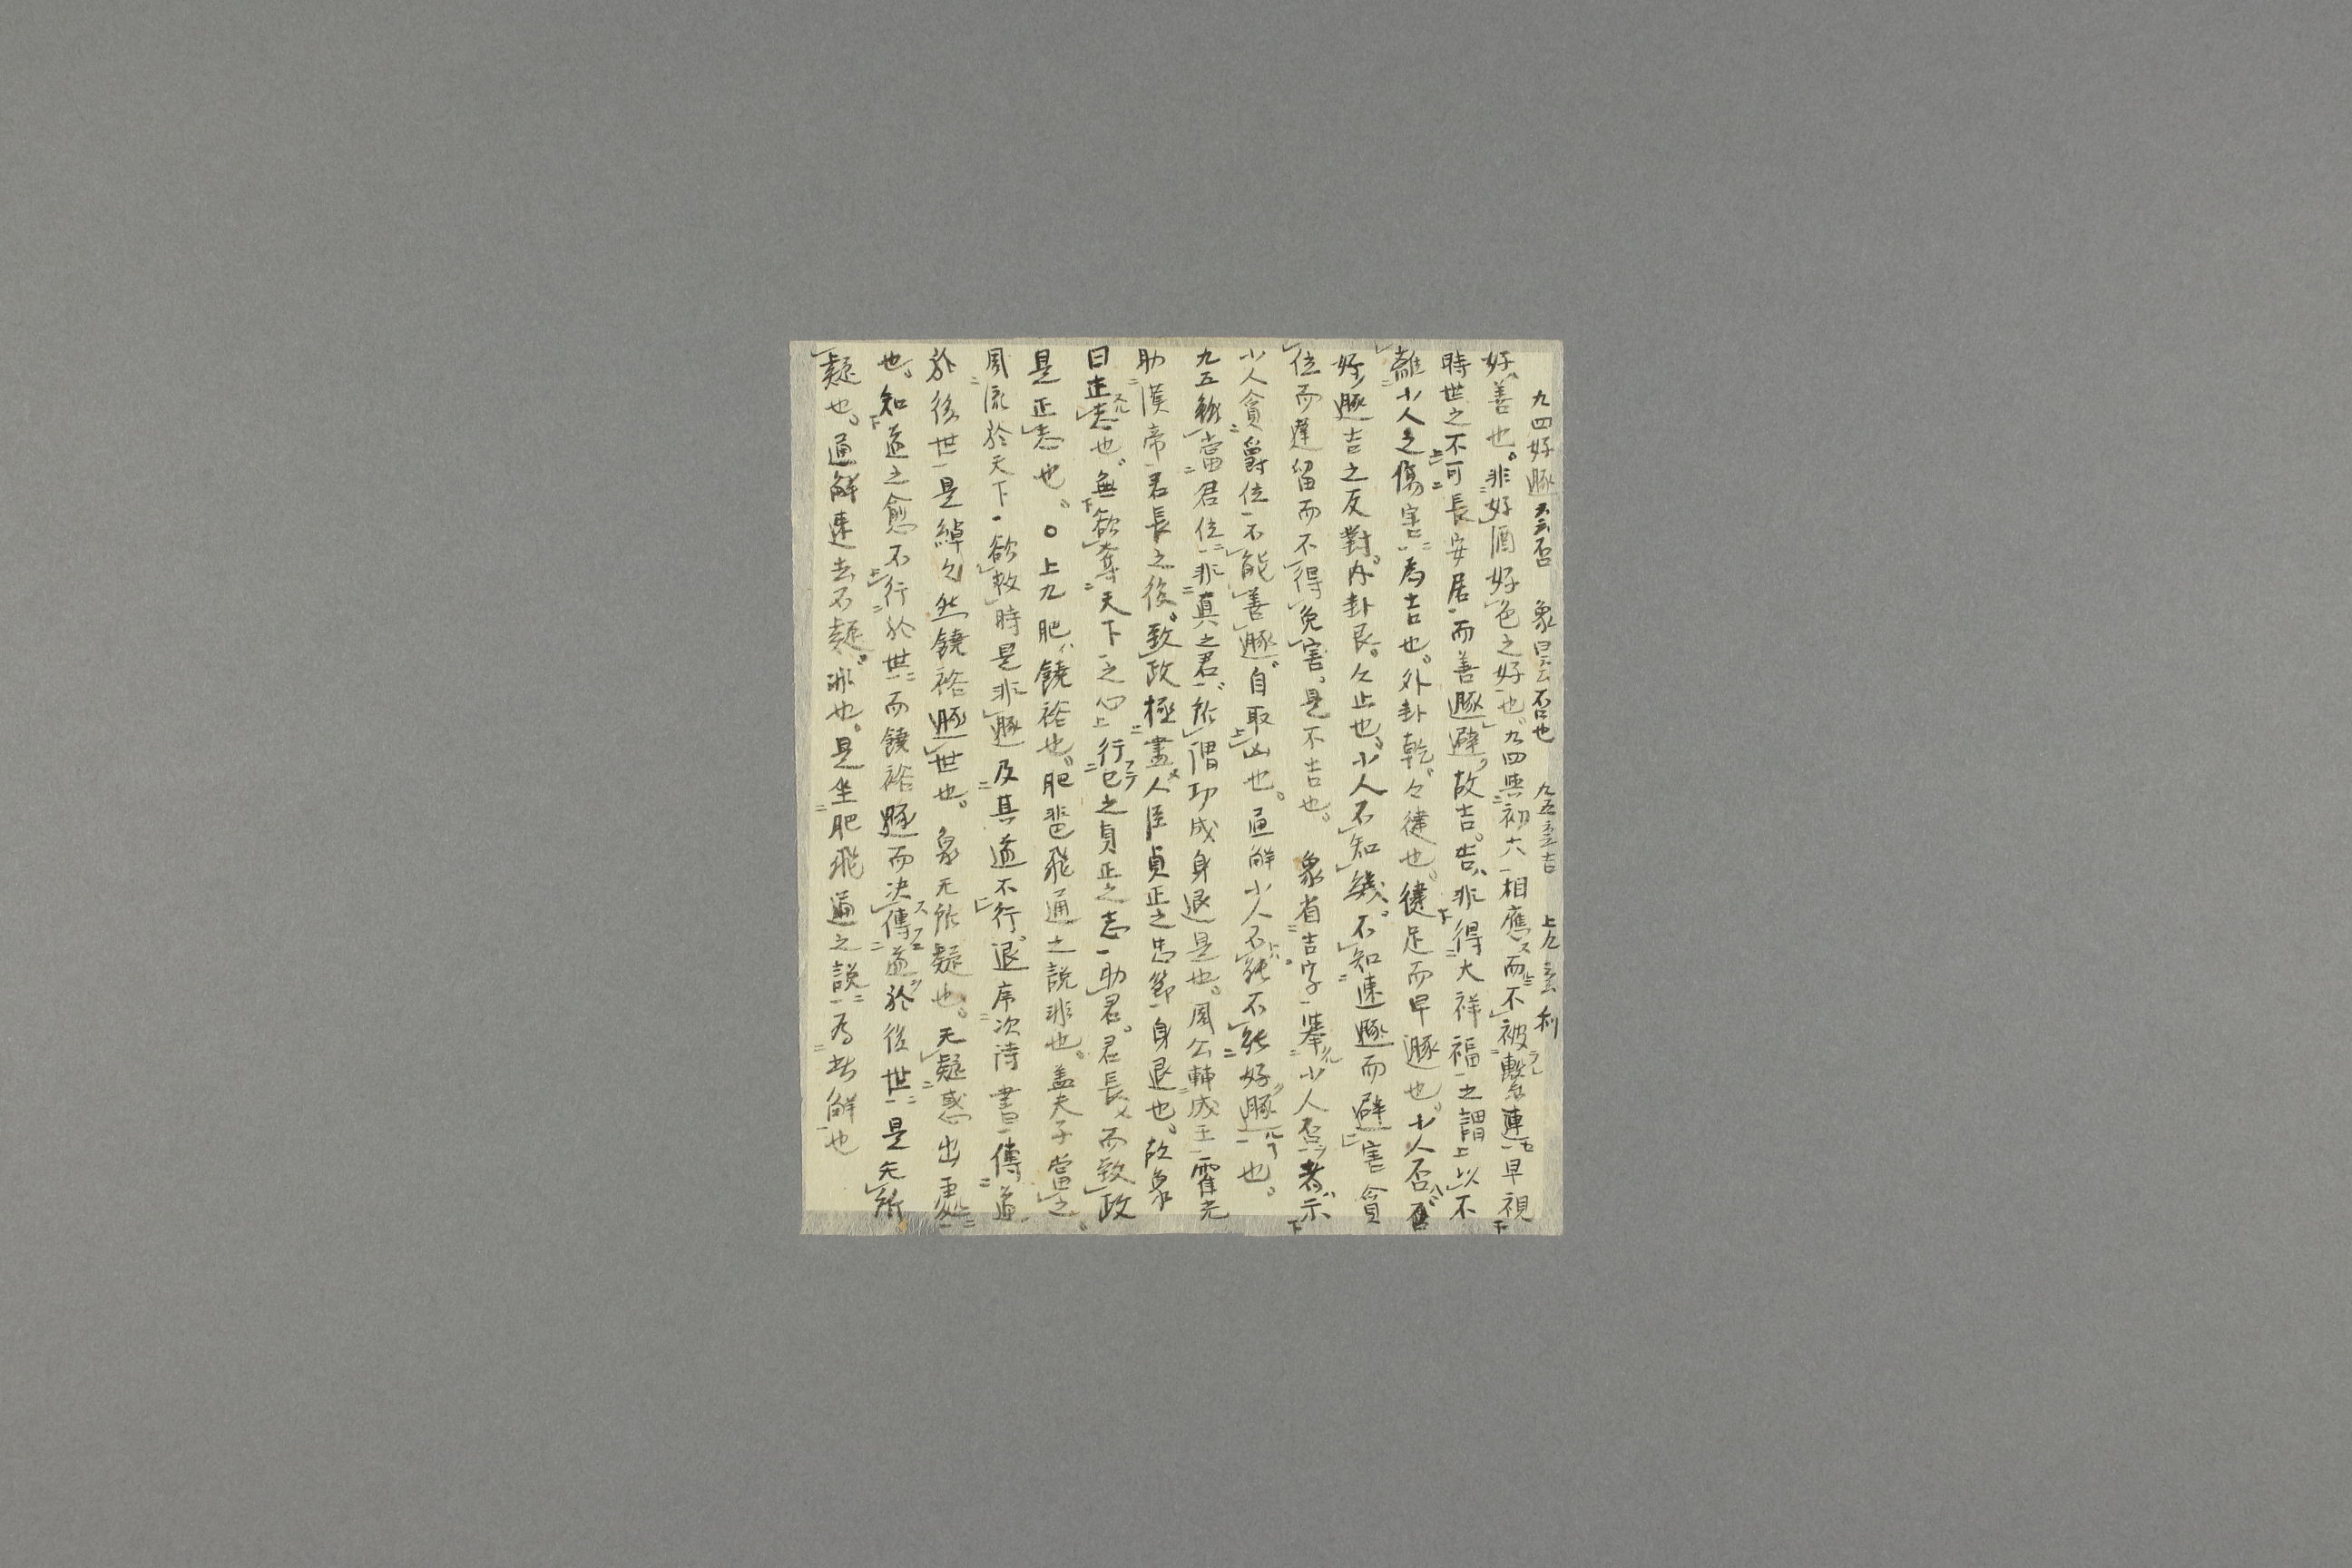 九四好遯云云否 象曰云云否也 九五云云吉 上九云云利
好善也。非好酒好色之好也。九四與初六相應而不被繫連早視
時世之不可長安居而善遯避故吉。吉非得大祥福之謂以不
離小人之傷害為吉也。外卦乾。々健也。健足而早遯也。小人否否
好遯吉之反對。內卦艮。々止也。小人不知幾。不知速遯而避害貪
位而遲留而不得免害。是不吉也。 象省吉字舉小人否者示
小人貪爵位不能善遯。自取凶也。通解小人不能不能好遯也。
九五雖當君位非真之君。所謂功成身退是也。周公輔成王霍光
助漢帝君長之後。致政極盡人臣貞正之忠節身退也。故象
曰正志也。無欲奪天下之心行已之貞正之志助君。君長而致政
是正志也。○上九肥、饒裕也。肥蜚飛通之說非也。蓋夫子當之
周流於天下欲救時是非遯及其道不行退序次詩書傳道
於後世是綽々然饒裕遯世也。 象无所疑也。无疑惑出處
也。知道之愈不行於世而饒裕遯而決傳道於後世是无所
疑也。通解速去不疑。非也。是坐肥飛通之說為此解也